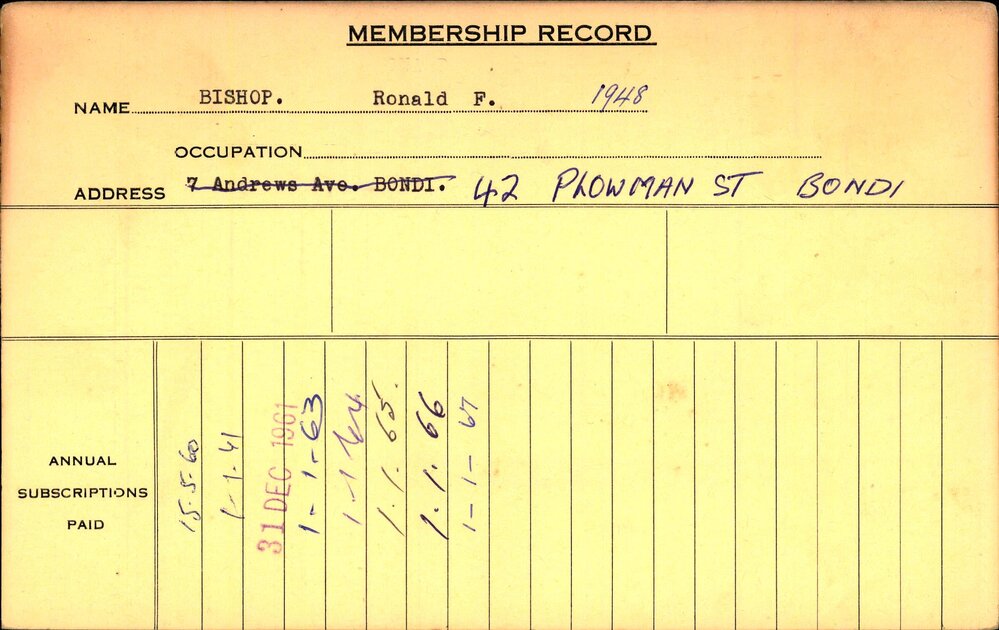 MEMBERSHIP RECORD
NAME BISHOP. Ronald F. 1948
OCCUPATION
ADDRESS 7 Andrews Ave. BONDI. 42 PLOWMAN ST BONDI
ANNUAL
SUBSCRIPTIONS
PAID
15.5.60
1-1.61
31 DEC 1961
1-1-63
1-1-64
1.1.65.
1.1.66
1-1-67